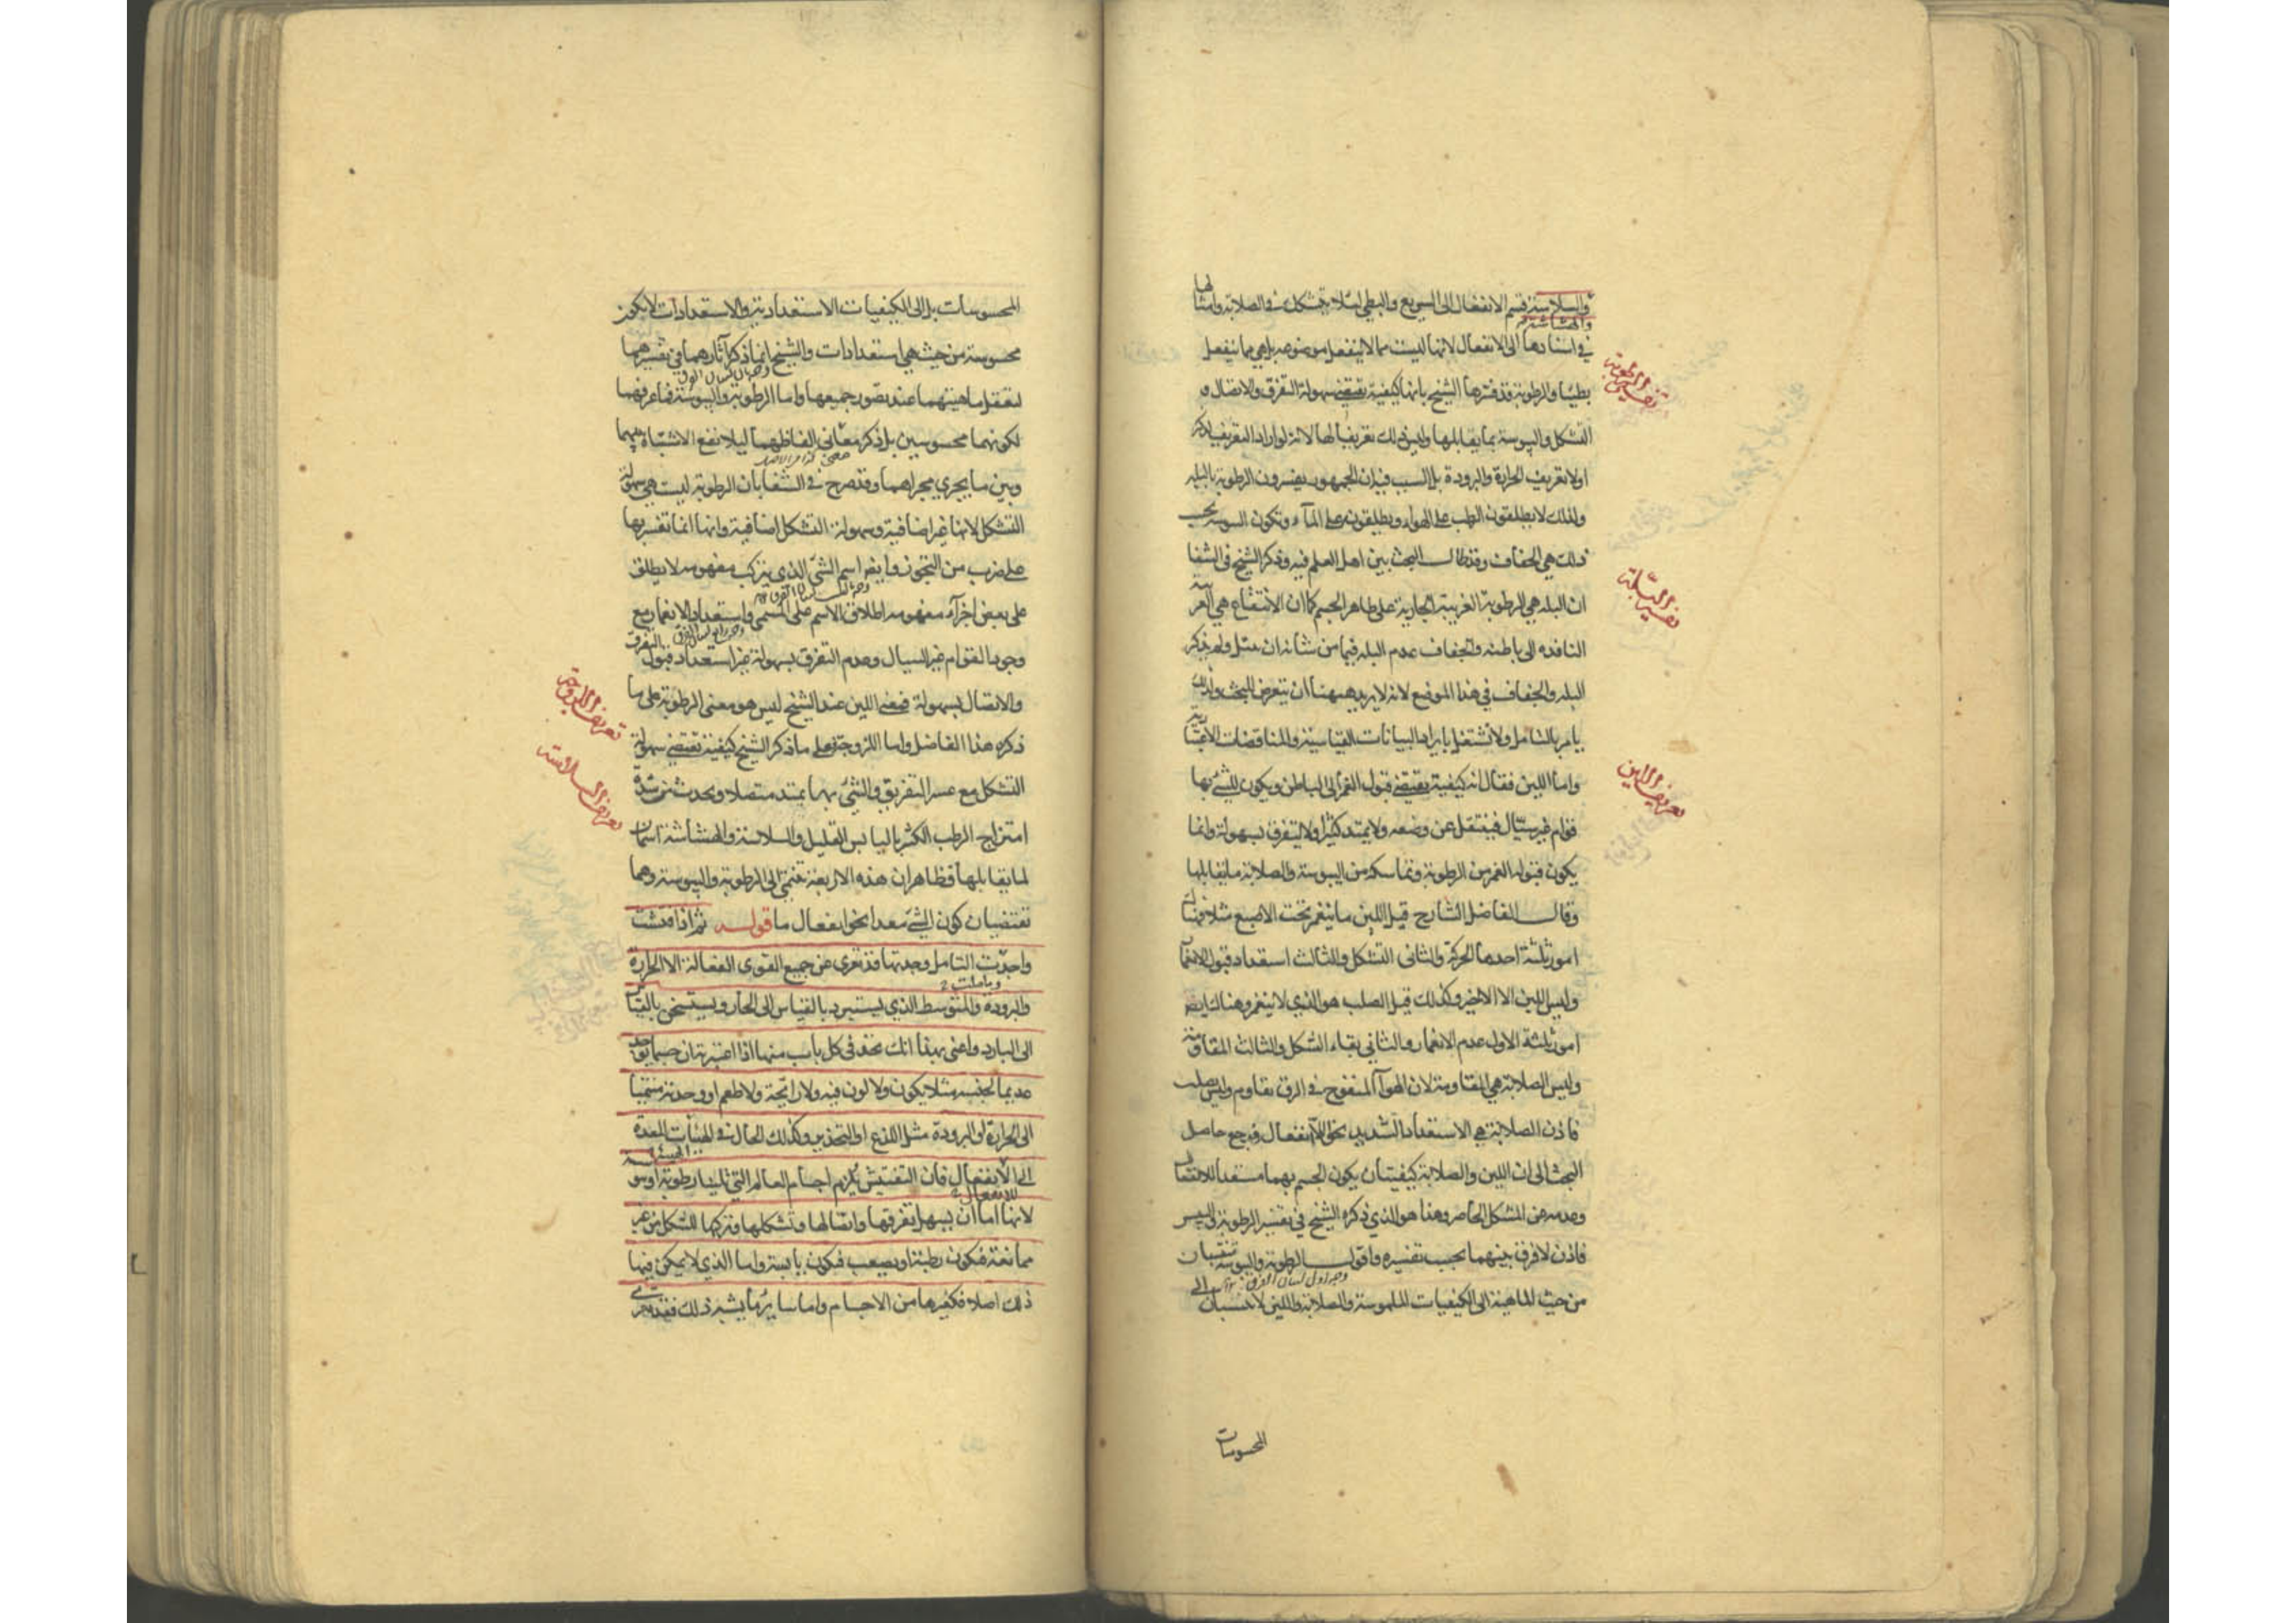 والسلاسة قسم الانفعال الى السريع والبطي لئلا يتشكك في الصلابة وامثالها
والهشاشة
في اسنادها الى الانفعال لانها ليست مما لا ينفعل موضوعه بل هي مما ينفعل
بطيئا والرطوبة قد فسرها الشيخ بانها كيفية تقتضي سهولة التفرق والاتصال و
تفسير الرطوبة
التشكل واليبوسة بما يقابلها وليس ذلك تعريفا لها لانه لو اراد التعريف لذكر
اولا تعريف الحرارة والبرودة بل السبب فيه ان الجمهور يفسرون الرطوبة بالبلة
ولذلك لا يطلقون الرطب على الهواء ويطلقونه على الماء وتكون اليبوسة بحسب
ذلك هي الجفاف وقد طال البحث بين اهل العلم فيه وذكر الشيخ في الشفا
ان البلة هي الرطوبة الغريبة الجارية على ظاهر الجسم كما ان الانتقاع هي الغريبة
تفسير البلّة
النافذة الى باطنه والجفاف عدم البلة فيما من شانه ان يبتل ولم يذكر
البلة والجفاف في هذا الموضع لانه لا يريد ههنا ان يتعرض للبحث ولذلك
يامر بالتامل ولا تشتغل بايراد البيانات القياسية والمناقضات الاعتبارية
واما اللين فقال انه كيفية تقتضي قبول الغمز الى الباطن ويكون للشيء بها
تعريف اللين
قوام غير سيّال فينتقل عن وضعه ولا يمتد كثيرا ولا يتفرق بسهولة وانما
يكون قبوله الغمز من الرطوبة وتماسكه من اليبوسة والصلابة ما يقابلها
وقال الفاضل الشارح قيل اللين ما ينغمز تحت الاصبع مثلا فهناك
امور ثلثة احدها الحركة والثاني التشكل والثالث استعداد قبول الانغماز
وليس اللين الا الاخير وكذلك قيل الصلب هو الذي لا ينغمز وهناك ايضا
امور ثلثة الاول عدم الانغماز والثاني بقاء الشكل والثالث المقاومة
وليس الصلابة هي المقاومة لان الهواء المنفوخ في الزق يقاوم وليس بصلب
فاذن الصلابة هي الاستعداد الشديد نحو اللاانفعال فرجع حاصل
البحث الى ان اللين والصلابة كيفيتان يكون الجسم بهما مستعدا للانفعال
وعدمه عن الشكل الحاضر وهذا هو الذي ذكره الشيخ في تفسير الرطوبة واليبس
فاذن لا فرق بينهما بحسب تفسيره واقول الرطوبة واليبوسة تنتسبان
وجه اول لبيان الفرق
من حيث الماهية الى الكيفيات الملموسة والصلابة واللين لا تنتسبان الى
المحسوسات
المحسوسات بل الى الكيفيات الاستعدادية والاستعدادات لا تكون
محسوسة من حيث هي استعدادات والشيخ انما ذكر آثارهما في تفسيرهما
لتعقل ماهيتهما عند تصور جميعها واما الرطوبة واليبوسة فما عرفهما
لكونهما محسوسين بل ذكر معاني الفاظهما ليلا يقع الاشتباه بينهما
وبين ما يجري مجراهما وقد صرح في الشفا بان الرطوبة ليست هي سهولة
التشكل لانها غير اضافية وسهولة التشكل اضافية وانها انما تفسر بها
على ضرب من التجوز وايضا اسم الشيء الذي يتركب مفهومه لا يطلق
على بعض اجزاء مفهومه اطلاق الاسم على المسمى واستعداد الانغماز مع
وجود القوام غير السيال وعدم التفرق بسهولة غير استعداد قبول التفرق
والاتصال بسهولة فمعنى اللين عند الشيخ ليس هو معنى الرطوبة على ما
ذكره هذا الفاضل واما اللزوجة فعلى ما ذكر الشيخ كيفية تقتضي سهولة
تعريف اللزوجة
التشكل مع عسر التفريق والشيء بها يمتد متصلا ويحدث من شدة
تعريف السلاسة
امتزاج الرطب الكثير باليابس القليل والسلاسة والهشاشة اسمان
لما يقابلها فظاهر ان هذه الاربعة تنتمي الى الرطوبة واليبوسة وهما
تقتضيان كون الشيء معدا نحو انفعال ما قوله ثم اذا فتشت
واجدّت التامل وجدتها قد تعرى عن جميع القوى الفعالة الا الحرارة
والبرودة والمتوسط الذي يستبرد بالقياس الى الحار ويستسخن بالقياس
الى البارد واعني بهذا انك تجد في كل باب منها اذا اعتبرته ان جسما يوجد
عديما لجنسه مثلا يكون ولا لون فيه ولا رائحة ولا طعم او وجدته منتميا
الى الحرارة او البرودة مثل اللذع او التخدير وكذلك الحال في الهيئات المعدة
الى الانفعال فان التفتيش يلزم اجسام العالم التي تلينا رطوبة او يبوسة
للانفعال
لانها اما ان يسهل تفرقها واتصالها وتشكلها وتركها للشكل من غير
ممانعة فتكون رطبة او يصعب فيكون يابسة واما الذي لا يمكن فيها
ذلك اصلا فكغيرها من الاجسام واما سائر ما يشبه ذلك فقد يعرى